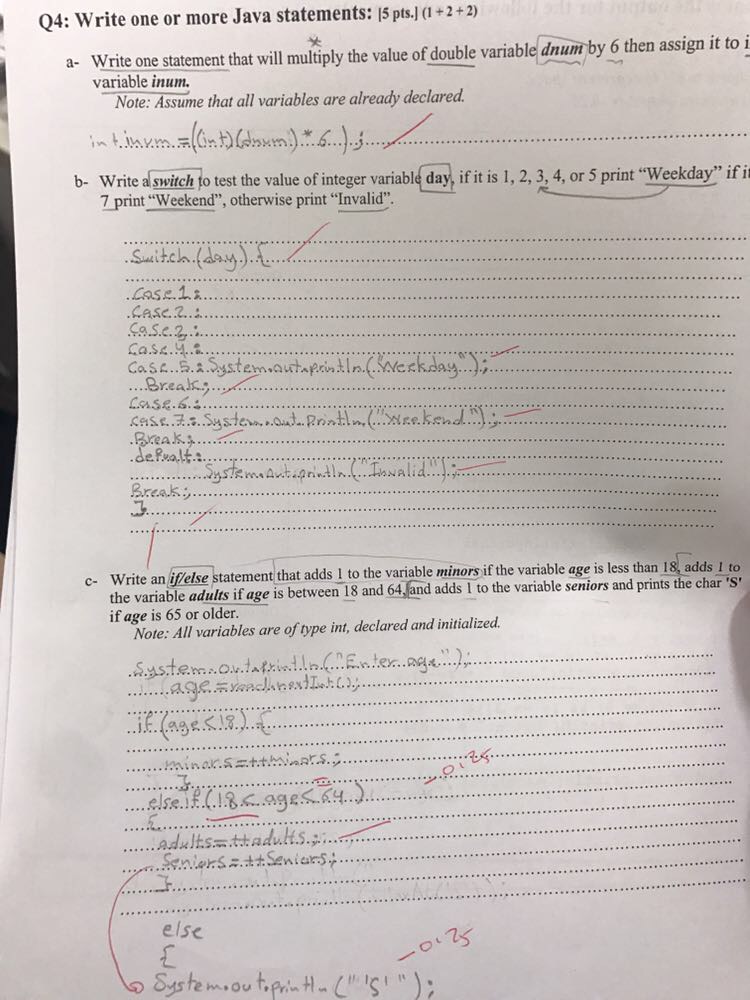 Q4: Write one or more Java statements: [5 pts.] (1 + 2 + 2)
*
a- Write one statement that will multiply the value of double variable dnum by 6 then assign it to i
variable inum.
Note: Assume that all variables are already declared.
int inum = ((int)(dnum) * 6 );
b- Write a switch to test the value of integer variable day, if it is 1, 2, 3, 4, or 5 print “Weekday” if i
7 print “Weekend”, otherwise print “Invalid”.
Switch (day) {
Case 1 :
Case 2 :
Case 3 :
Case 4 :
Case 5 : System.out.println ("Weekday");
Break;
Case 6 :
case 7 : System.out.println ("Weekend");
Break;
defualt :
System.out.println ("Invalid");
Break;
}
c- Write an if/else statement that adds 1 to the variable minors if the variable age is less than 18, adds 1 to
the variable adults if age is between 18 and 64, and adds 1 to the variable seniors and prints the char 'S'
if age is 65 or older.
Note: All variables are of type int, declared and initialized.
System.out.println ("Enter age");
(age = read.nextInt();
if (age < 18) {
minors = ++minors;
}
else if (18 < age < 64)
-0.25
{
adults = ++adults;
Seniors = ++Seniors;
}
else
{
-0.25
System.out.println ("'S'");